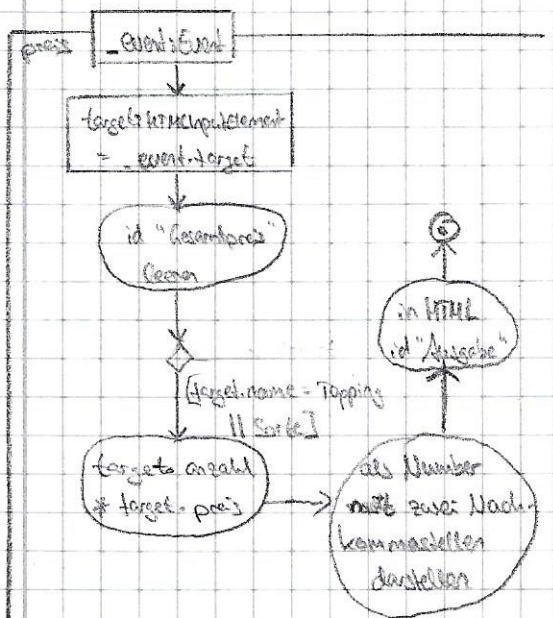 preis
_event:Event
target:HTMLInputElement
= _event.target
id "Gesamtpreis"
leeren
[target.name = Topping
|| Sorte]
target.anzahl
* target.preis
als Number
mit zwei Nach-
kommastellen
darstellen
in HTML
id "Ausgabe"